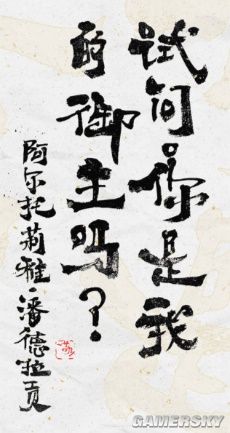 试问。你是我
的御主吗？
阿尔托莉雅·潘德拉贡
GAMERSKY